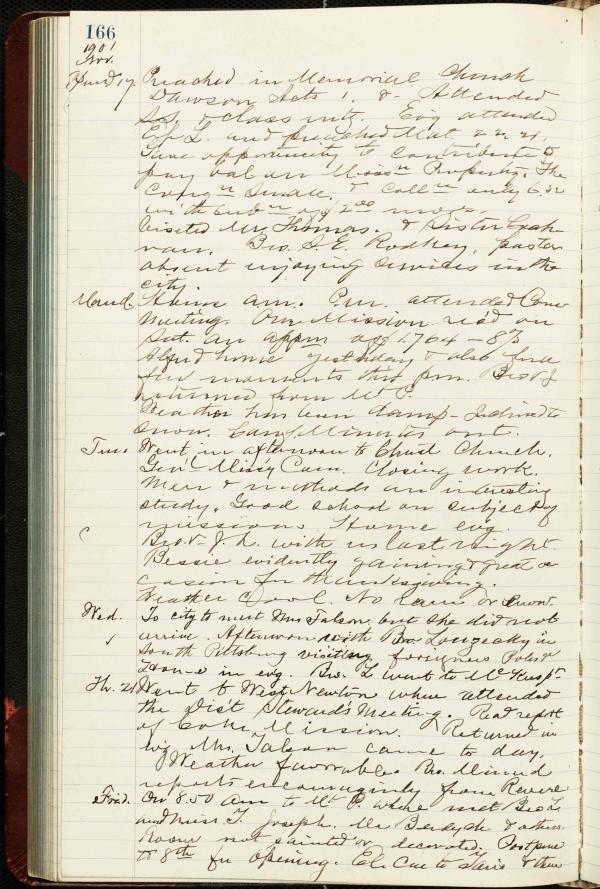 166
1901
Nov.
Sund 17 Preached in Memorial Church
Dawson Acts 1. 8 - Attended
S.S. & Class mtg. Evg attended
Ep L. and preached Mat. 22. 21.
Gave opportunity to contribute to
pay bal on Missn Property. The
Congn small. & Colln only 6.32
with subn of 2.00 more.
Visited Mrs Thomas. & Sister
Bro. S. E. Rodkey, pastor
absent enjoying services in the
city.
Mond. Home am. Pm. attended Conv
Meeting. Our Mission rec'd on
Sat. an appn of 1764 -
Alfred home yesterday & also for a
few moments this pm. Bro
returned from Mt P.
Weather has been damp - Inclined to
snow. Conf Minutes out.
Tues Went in afternoon to Christ Church.
Gen'l Miss'y Com. Closing work.
Men & methods an interesting
study. Good school on subject of
missions. Home evg.
Bro. V- J. L. with us last night.
Bessie evidently gaining & great oc
casion for thanksgiving.
Weather Cool. No rain or snow.
Wed. To city to meet Mrs Talson but she did not
arrive. Afternoon with Bro. Louzecky in
South Pittsburg visiting foreigners Poles &
Home in evg. Bro. L went to McKeespt
Th. 21 Went to West Newton where attended
the Dist Steward's Meeting. Read report
of Coke Mission. Returned in
evg Mrs. Talson came to day.
Weather favorable. Bro. Minard
reports encouragingly from Revere
Frid. On 8.50 am to Mt P. where met Bro L.
and Miss F. Joseph. Mr & others.
Room not painted or decorated. Postpone
to 8th for opening. El. Car to & then